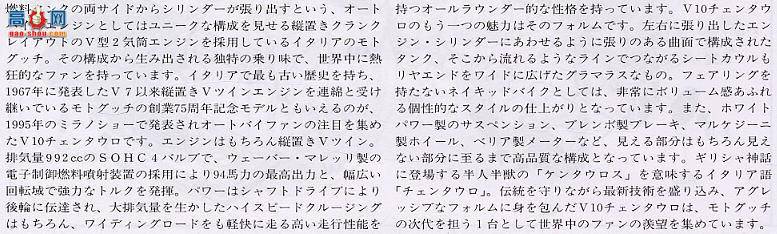 高鸟网
gao-shou.com
燃料タンクの両サイドからシリンダーが張り出すという、オート
ンジンとしてはユニークな構成を見せる縦置きクランク
レイアウトのV型2気筒エンジンを採用しているイタリアのモト
グッチ。その構成から生み出される独特の乗り味で、世界中に熱
狂的なファンを持っています。イタリアで最も古い歴史を持ち、
1967年に発表したV7以来縦置きVツインエンジンを連綿と受け
継いでいるモトグッチの創業75周年記念モデルともいえるのが、
1995年のミラノショーで発表されオートバイファンの注目を集め
たV10チェンタウロです。エンジンはもちろん縦置きVツイン。
排気量992ccのSOHC4バルブで、ウェーバー・マレッリ製の
電子制御燃料噴射装置の採用により94馬力の最高出力と、幅広い
回転域で強力なトルクを発揮。パワーはシャフトドライブにより
後輪に伝達され、大排気量を生かしたハイスピードクルージング
はもちろん、ワイディングロードをも軽快に走る高い走行性能を
持つオールラウンダー的な性格を持っています。V10チェンタウ
ロのもう一つの魅力はそのフォルムです。左右に張り出したエン
ジン・シリンダーにあわせるように張りのある曲面で構成された
タンク、そこから流れるようなラインでつながるシートカウルも
リヤエンドをワイドに広げたグラマラスなもの。フェアリングを
持たないネイキッドバイクとしては、非常にボリューム感あふれ
る個性的なスタイルの仕上がりとなっています。また、ホワイト
パワー製のサスペンション、ブレンボ製ブレーキ、マルケジーニ
製ホイール、ベリア製メーターなど、見える部分はもちろん見え
ない部分に至るまで高品質な構成となっています。ギリシャ神話
に登場する半人半獣の「ケンタウロス」を意味するイタリア語
「チェンタウロ」。伝統を守りながら最新技術を盛り込み、アグレ
ッシブなフォルムに身を包んだV10チェンタウロは、モトグッチ
の次代を担う1台として世界中のファンの羨望を集めています。